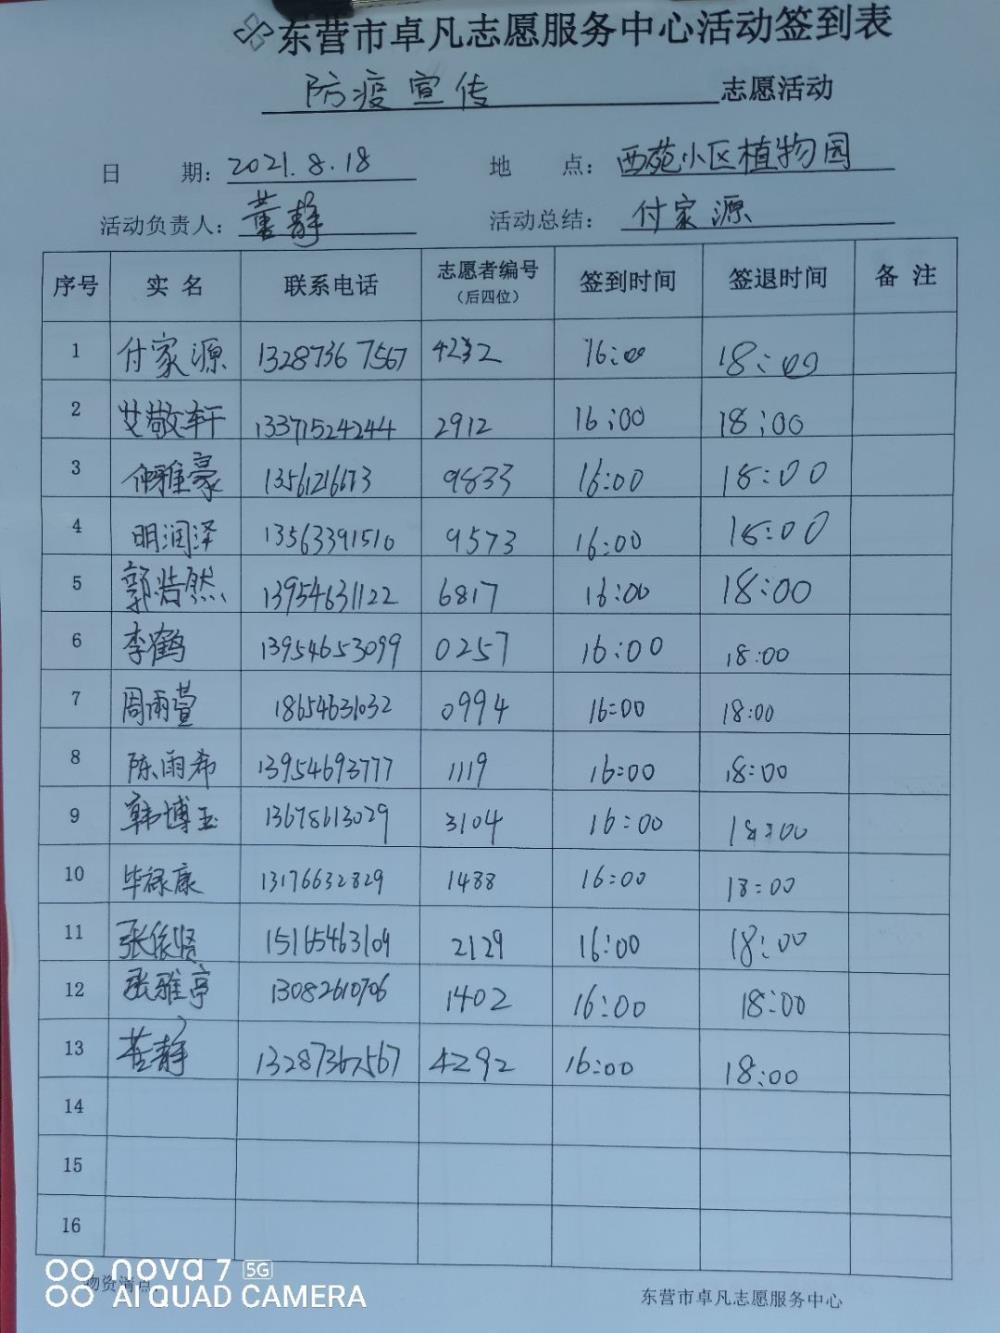 东营市卓凡志愿服务中心活动签到表
防疫宣传 志愿活动
日 期: 2021.8.18 地 点: 西苑小区植物园
活动负责人: 董静 活动总结: 付家源
序号 实 名 联系电话 志愿者编号 (后四位) 签到时间 签退时间 备 注
1 付家源 13287367567 4232 16:00 18:00
2 艾敬轩 13371524244 2912 16:00 18:00
3 仲雅豪 9833 16:00 18:00
4 明润泽 13563391510 9573 16:00 18:00
5 郭浩然 13954631122 6817 16:00 18:00
6 李鹤 13954653099 0257 16:00 18:00
7 周雨萱 18654631032 0994 16:00 18:00
8 陈雨希 13954693777 1119 16:00 18:00
9 韩博玉 13678613029 3104 16:00 18:00
10 毕禄康 13176632829 1488 16:00 18:00
11 张俊贤 15165463109 2129 16:00 18:00
12 张雅亭 13082610706 1402 16:00 18:00
13 董静 13287367567 4292 16:00 18:00
14
15
16
物资清点:
东营市卓凡志愿服务中心
nova 7 5G
AI QUAD CAMERA